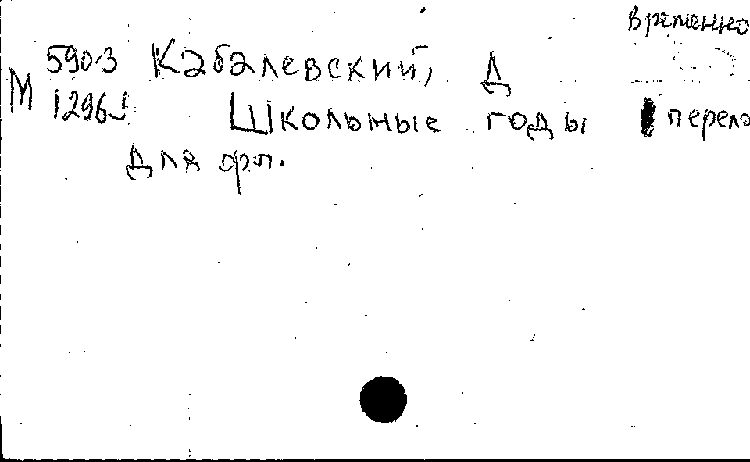 временно
М 590-3 Кабалевский, Д
1296
Школьные годы перело
для фп.